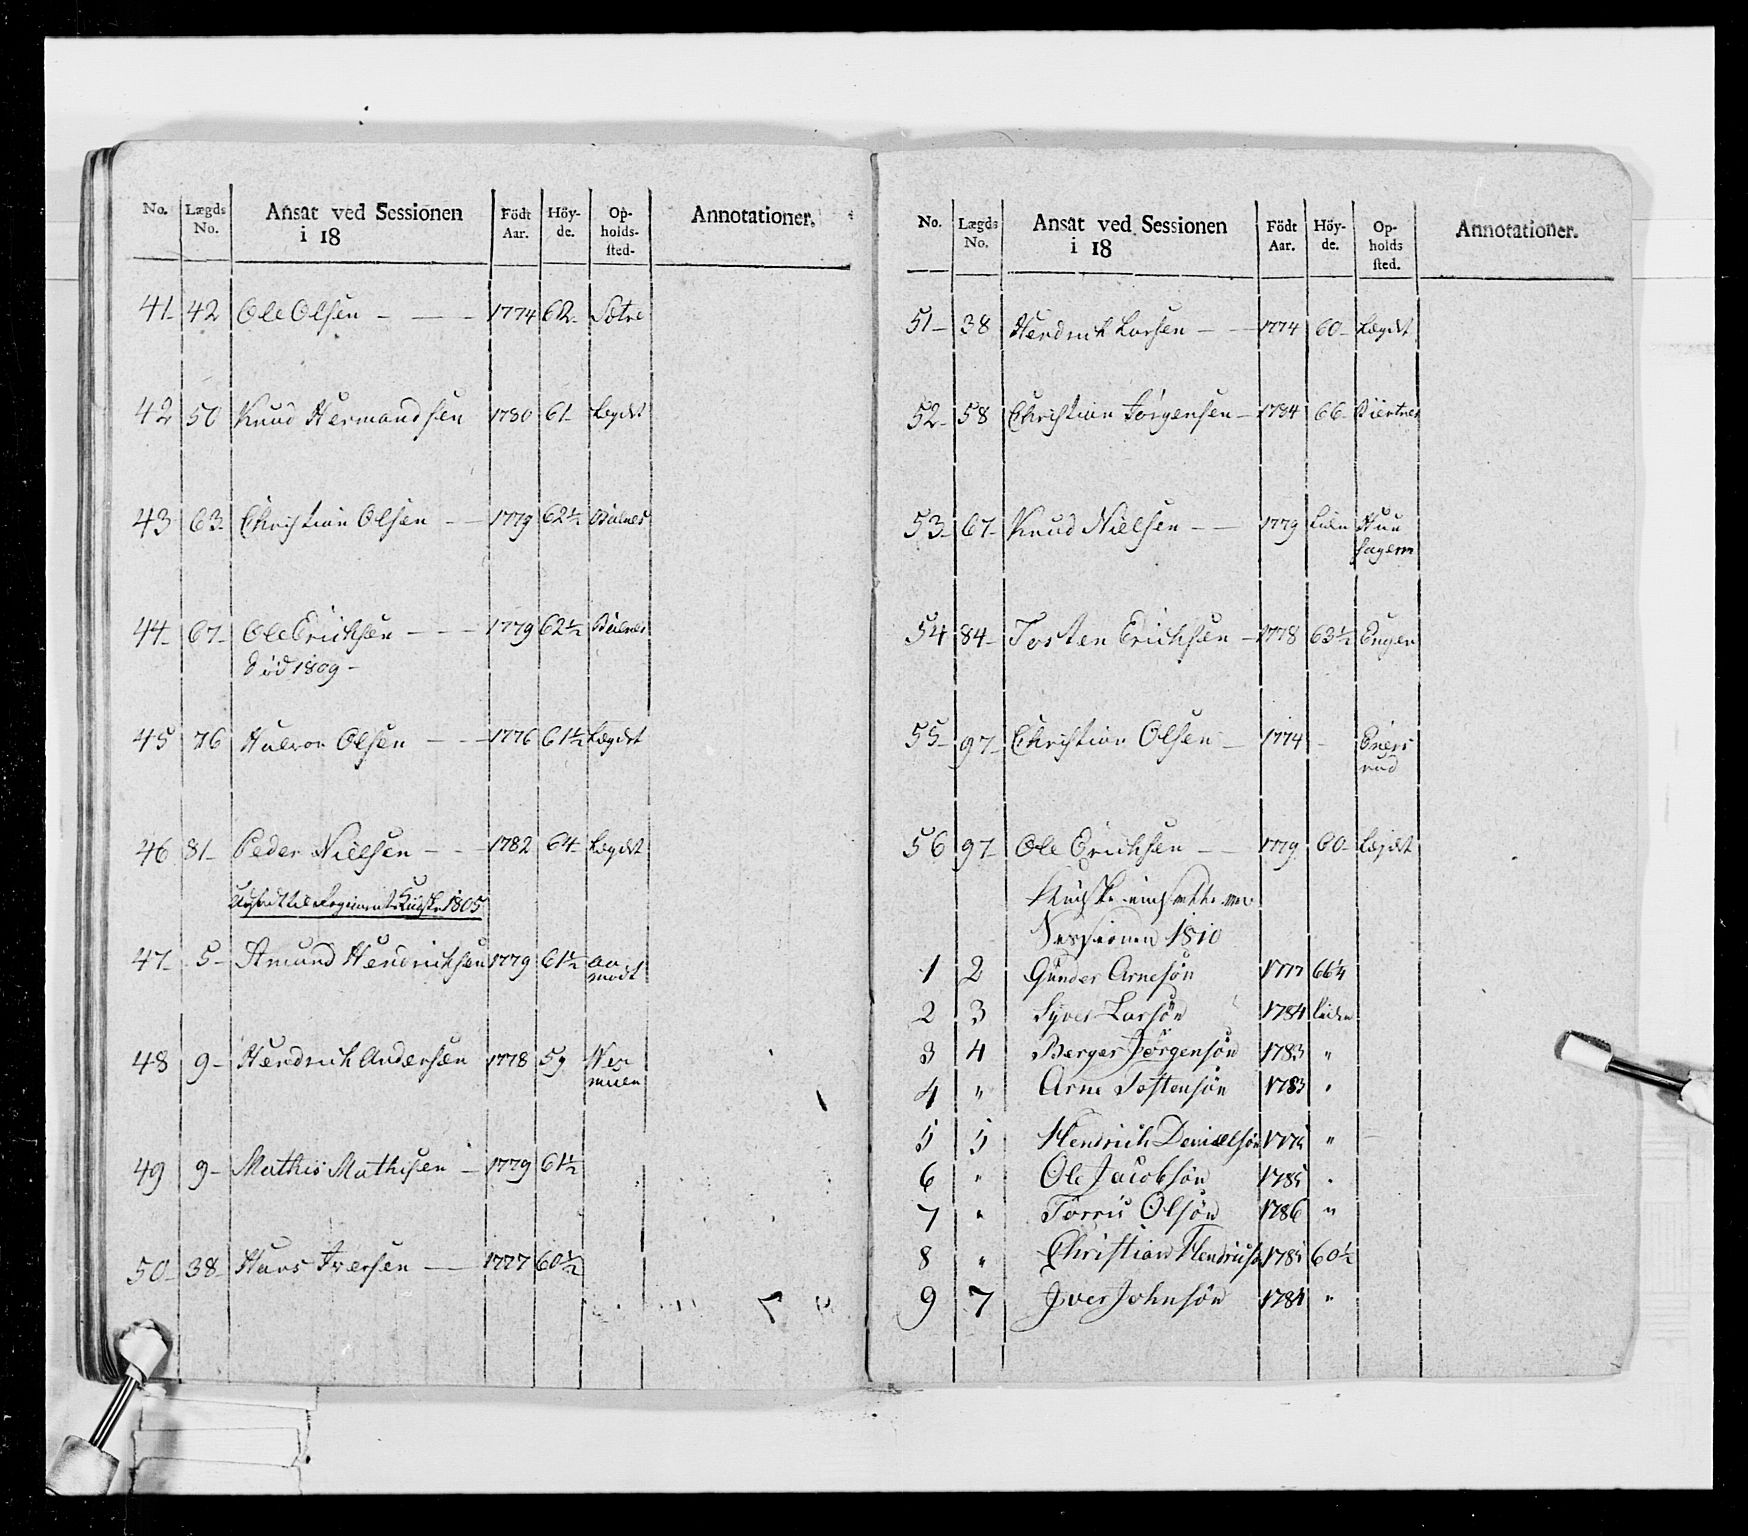 No. Lægds No. Ansat ved Sessionen i 18 Födt Aar. Höy-de. Op-holds-sted- Annotationer.
41- 42 Ole Olsen - - - 1774 62- Sætre
42 50 Knud Hermandsen 1780 61- Legdet
43 63- Christian Olsen - - 1779 62½
44- 67- Ole Erichsen - - - 1779 62½
Död 1809-
45 76 Halvor Olsen - - - 1776 61½ Legdet
46 81- Peder Nielsen - - 1782 64- Legdet
1805
47- 5- Amund Hendrichsen 1779 61½ Aa
modt
48 9- Hendrich Andersen 1778 59
49 9- Mathis Mathisen - 1779 61½
50- 38- Hans Iversen - 1777 60½
No. Lægds No. Ansat ved Sessionen i 18 Födt Aar. Höy-de. Op-holds sted. Annotationer.
51- 38 Hendrich Larsen - - 1774 60- Legdet
52- 58 Christian Jörgensen - 1784 66-
53- 67- Knud Nielsen - - 1779 Liden
54 84- Tosten Erichsen - 1778 63½ Enger
55- 97- Christian Olsen - 1774 - Eners
rud
56 97- Ole Erichsen - - 1779 60- Legdet
Sessionen 1810
1 2 Gunder Arnesön 1777 66¼
2 3 Syver Larsön 1784 Liden
3 4 Berger Jörgensön 1783 "
4 " Arne Tostensön 1783 "
5 5 Hendrich Danielsön "
6 " Ole Jacobsön 1785 "
7 " Torris Olsön 1786 "
8 " Christian Hendrichs 1785 60½
9 7 Iver Johnsön 1784 "